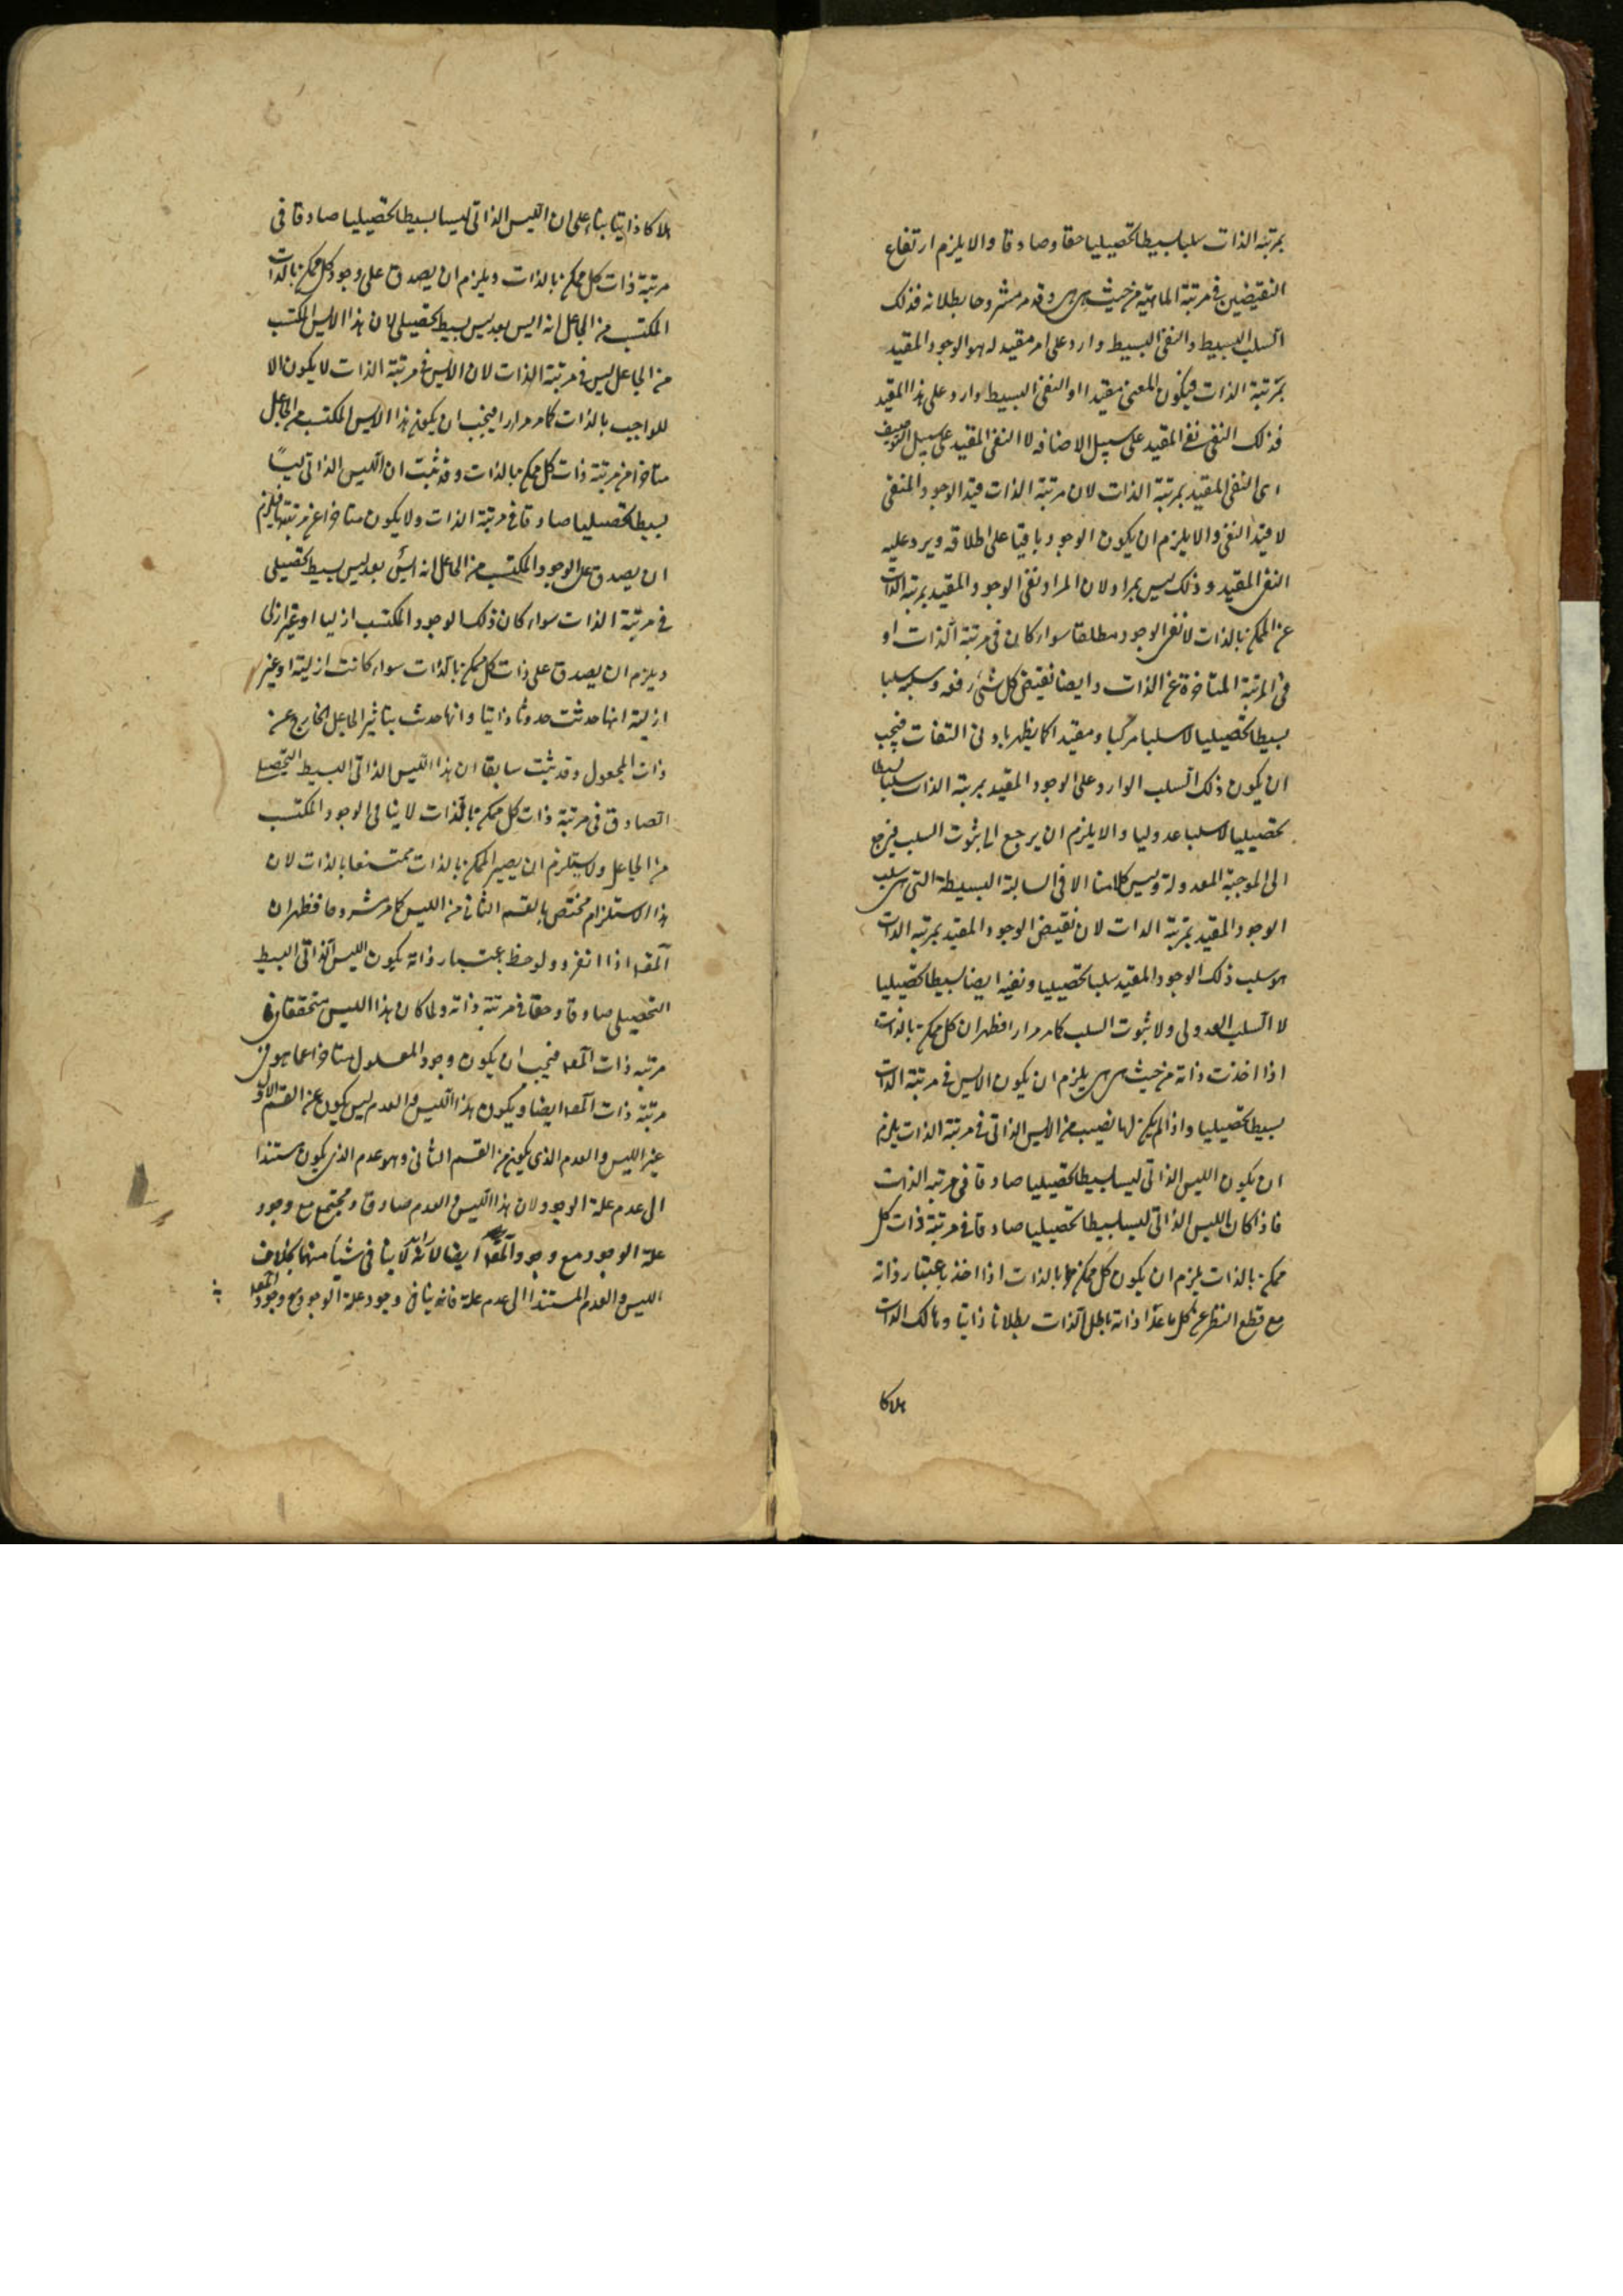 بمرتبة الذات سلبا بسيطا تحصيليا حقا وصادقا والا يلزم ارتفاع
النقيضين في مرتبة الماهية من حيث هي هي وقد مر مشروحا بطلانه فذلك
السلب البسيط والنفي البسيط وارد على امر مقيد له هو الوجود المقيد
بمرتبة الذات فيكون المعنى مقيدا او النفي البسيط وارد على هذا المقيد
فذلك النفي نفي المقيد على سبيل الاضافه لا النفي المقيد على سبيل التوصيف
اى النفي المقيد بمرتبة الذات لان مرتبة الذات قيد الوجود المنفي
لا قيد النفي والا يلزم ان يكون الوجود باقيا على اطلاقه ويرد عليه
النفي المقيد وذلك ليس بمراد لان المراد نفي الوجود المقيد بمرتبة الذات
عن الممكن بالذات لا نفي الوجود مطلقا سواء كان في مرتبة الذات او
في المرتبة المتاخرة عن الذات وايضا نقيض كل شئ رفعه وسلبه سلبا
بسيطا تحصيليا لا سلبا مركبا ومقيدا كما يظهر بادنى التفات فيجب
ان يكون ذلك السلب الوارد على الوجود المقيد بمرتبة الذات سلبا بسيطا
تحصيليا لا سلبا عدوليا والا يلزم ان يرجع الى ثبوت السلب فيرجع
الى الموجبة المعدولة وليس كلامنا الا في السالبة البسيطة التي هي سلب
الوجود المقيد بمرتبة الذات لان نقيض الوجود المقيد بمرتبة الذات
هو سلب ذلك الوجود المقيد سلبا تحصيليا ونفيه ايضا بسيطا تحصيليا
لا السلب العدولى ولا ثبوت السلب كما مر مرارا فظهر ان كل ممكن بالذات
اذا اخذت ذاته من حيث هي هي يلزم ان يكون الايس في مرتبة الذات
بسيطا تحصيليا واذا لم يكن لها نصيب من الايس الذاتى في مرتبة الذات يلزم
ان يكون الليس الذاتى ليسا بسيطا تحصيليا صادقا في مرتبة الذات
فاذا كان الليس الذاتى ليسا بسيطا تحصيليا صادقا في مرتبة ذات كل
ممكن بالذات يلزم ان يكون كل ممكن بالذات اذا اخذ باعتبار ذاته
مع قطع النظر عن كل ما عدا ذاته باطل الذات بطلانا ذاتيا وهالك الذات
هلاكا
هلاكا ذاتيا بناء على ان الليس الذاتى ليسا بسيطا تحصيليا صادقا في
مرتبة ذات كل ممكن بالذات ويلزم ان يصدق على وجود كل ممكن بالذات
المكتسب من الجاعل انه ايس بعد ليس بسيط تحصيلى لان هذا الايس المكتسب
من الجاعل ليس في مرتبة الذات لان الايس في مرتبة الذات لا يكون الا
للواجب بالذات كما مر مرارا فيجب ان يكون هذا الايس المكتسب من الجاعل
متاخرا عن مرتبة ذات كل ممكن بالذات وقد ثبت ان الليس الذاتى ليسا
بسيطا تحصيليا صادقا في مرتبة الذات ولا يكون متاخرا عن مرتبتها فيلزم
ان يصدق على الوجود المكتسب من الجاعل انه ايس بعد ليس بسيط تحصيلى
في مرتبة الذات سواء كان ذلك الوجود المكتسب ازليا او غير ازلى
ويلزم ان يصدق على ذات كل ممكن بالذات سواء كانت ازلية او غير
ازلية انها حدثت حدوثا ذاتيا وانها حدث بتاثير الجاعل الخارج عن
ذات المجعول وقد ثبت سابقا ان هذا الليس الذاتى البسيط التحصيلى
الصادق في مرتبة ذات كل ممكن بالذات لا ينافى الوجود المكتسب
من الجاعل ولا يستلزم ان يصير الممكن بالذات ممتنعا بالذات لان
هذا الاستلزام مختص بالقسم الثانى من الليس كما مر مشروحا فظهر ان
المعه اذا انفرد ولوحظ باعتبار ذاته يكون الليس الذاتى البسيط
التحصيلى صادقا وحقا في مرتبة ذاته ولما كان هذا الليس متحققا في
مرتبه ذات المعه فيجب ان يكون وجود المعلول متاخرا عما هو في
مرتبة ذات المعه ايضا ويكون هذا الليس والعدم ليس يكون عن القسم الاول
غير الليس والعدم الذى يكون من القسم الثانى وهو عدم الذى يكون مستندا
الى عدم علة الوجود لان هذا الليس والعدم صادق ومجتمع مع وجود
علة الوجود مع وجود المعه ايضا لانه لا ينافى شيأ منهما بخلاف
الليس والعدم المستند الى عدم علة فانه ينافى وجود علة الوجود مع وجود المعه